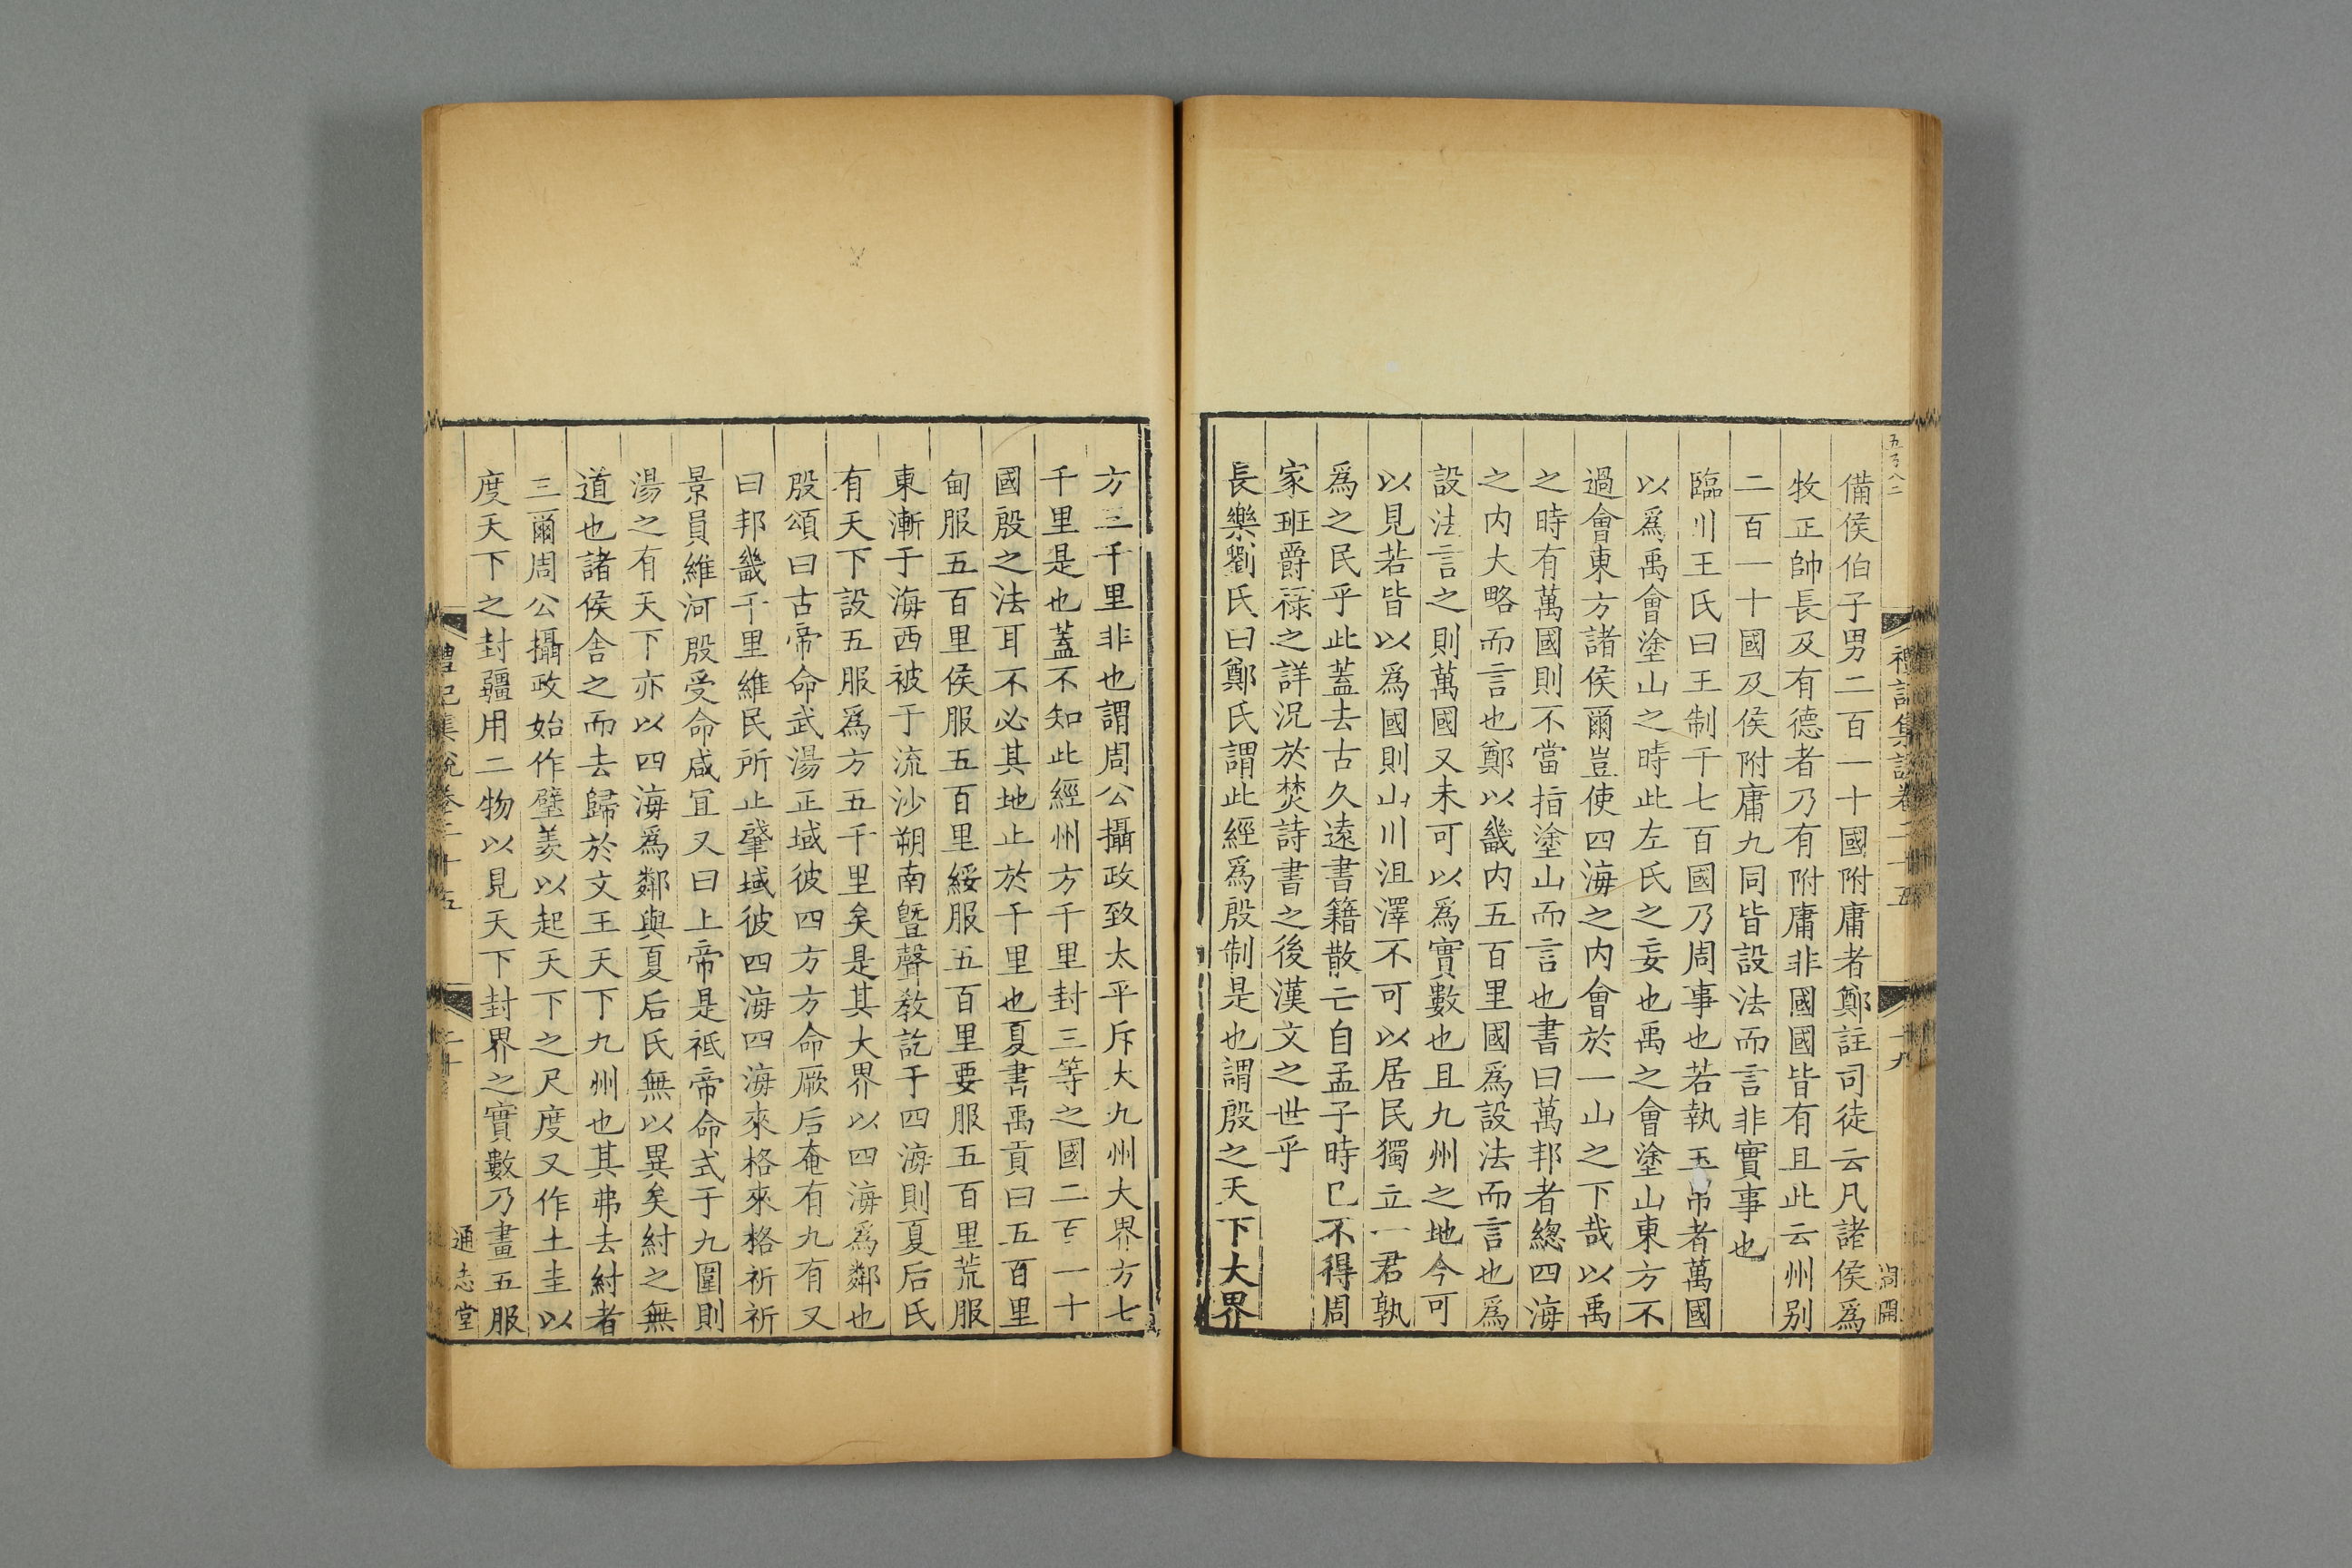 備侯伯子男二百一十國附庸者鄭註司徒云凡諸侯爲
牧正帥長及有德者乃有附庸非國國皆有且此云州别
二百一十國及侯附庸九同皆設法而言非實事也
臨川王氏曰王制千七百國乃周事也若執玉帛者萬國
以爲禹會塗山之時此左氏之妄也禹之會塗山東方不
過會東方諸侯爾豈使四海之内會於一山之下哉以禹
之時有萬國則不當指塗山而言也書曰萬邦者緫四海
之内大略而言也鄭以畿内五百里國爲設法而言也爲
設法言之則萬國又未可以爲實數也且九州之地今可
以見若皆以爲國則山川沮澤不可以居民獨立一君孰
爲之民乎此蓋去古久遠書籍散亡自孟子時已不得周
家班爵祿之詳況於焚詩書之後漢文之世乎
長樂劉氏曰鄭氏謂此經爲殷制是也謂殷之天下大界
禮記集說卷二十五
十九
方三千里非也謂周公攝政致太平斥大九州大界方七
千里是也蓋不知此經州方千里封三等之國二百一十
國殷之法耳不必其地止於千里也夏書禹貢曰五百里
甸服五百里侯服五百里綏服五百里要服五百里荒服
東漸于海西被于流沙朔南曁聲教訖于四海則夏后氏
有天下設五服爲方五千里矣是其大界以四海爲鄰也
殷頌曰古帝命武湯正域彼四方方命厥后奄有九有又
曰邦畿千里維民所止肇域彼四海四海來格來格祈祈
景員維河殷受命咸宜又曰上帝是祗帝命式于九圍則
湯之有天下亦以四海爲鄰與夏后氏無以異矣紂之無
道也諸侯舍之而去歸於文王天下九州也其弗去紂者
三爾周公攝政始作璧羡以起天下之尺度又作土圭以
度天下之封疆用二物以見天下封界之實數乃畫五服
禮記集說卷二十五
二十
通志堂